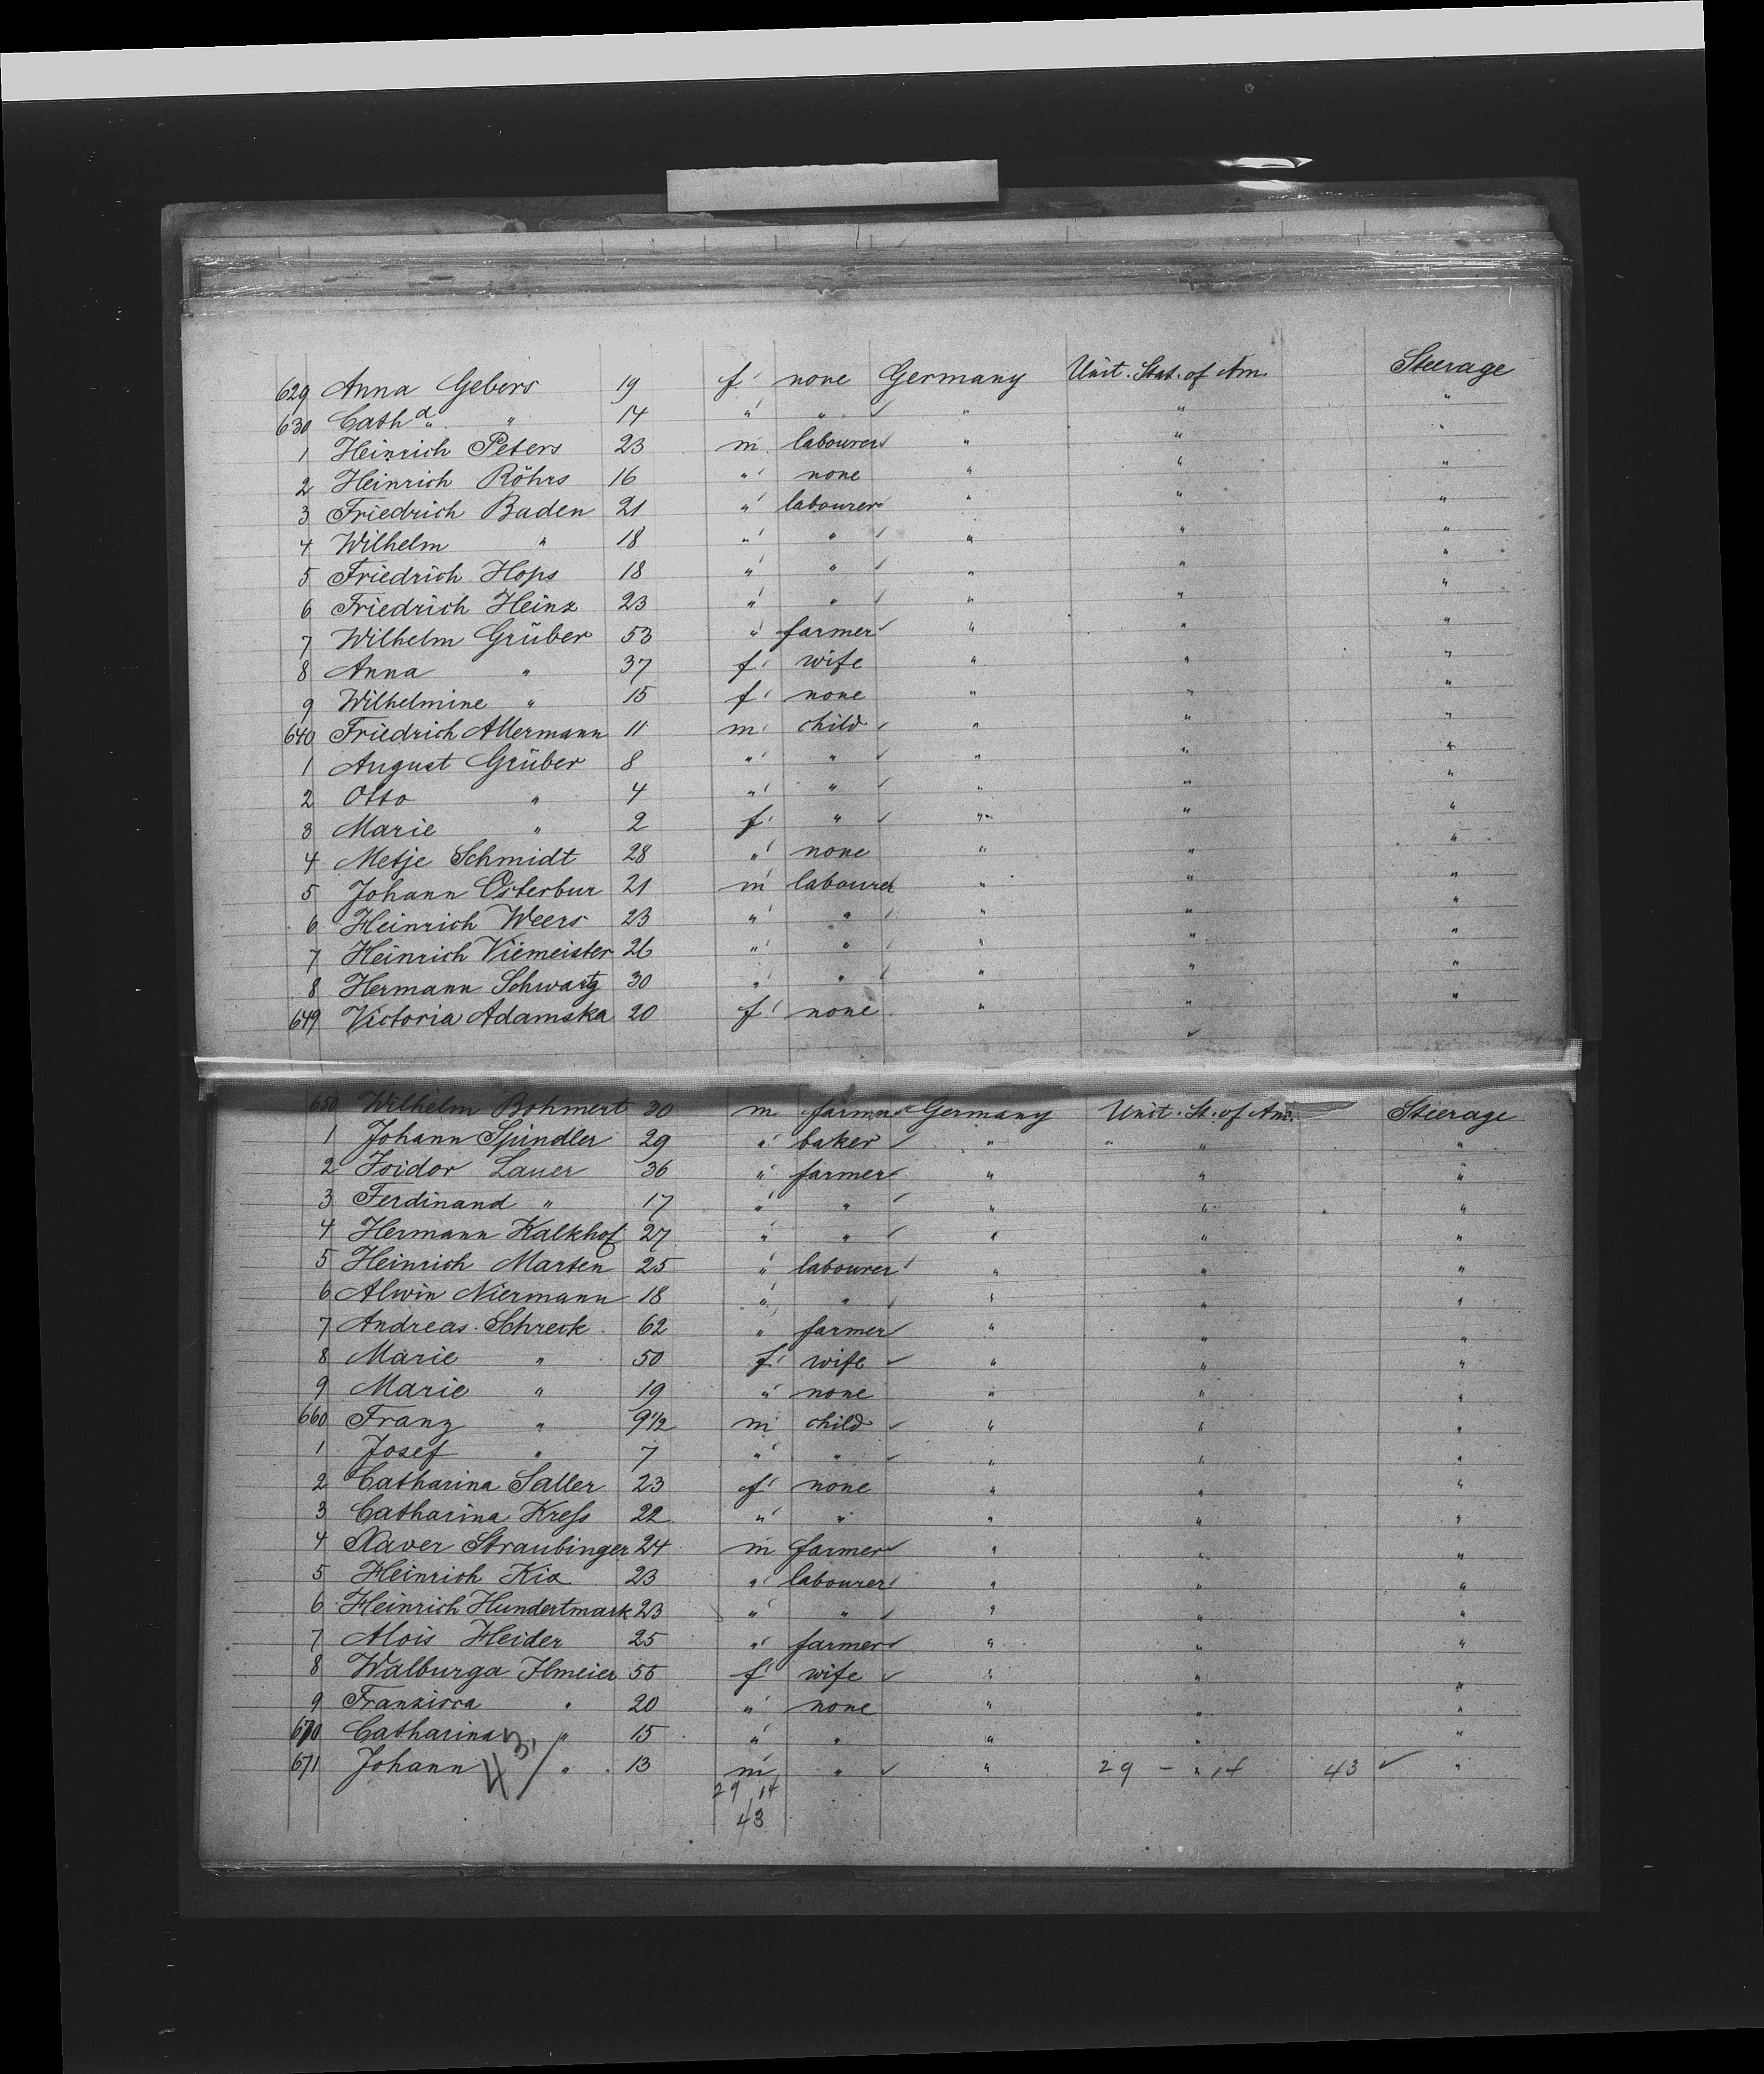 629 Anna Gebers 19 f none Germany Unit. Stat. of Am. Steerage
630 Cath.a " 14 " " " " "
1 Heinrich Peters 23 m labourer " " "
2 Heinrich Röhrs 16 " none " " "
3 Friedrich Baden 21 " labourer " " "
4 Wilhelm " 18 " " " " "
5 Friedrich Hops 18 " " " " "
6 Friedrich Heinz 23 " " " " "
7 Wilhelm Grüber 53 " farmer " " "
8 Anna " 37 f wife " " "
9 Wilhelmine " 15 f none " " "
640 Friedrich Allermann 11 m child " " "
1 August Grüber 8 " " " " "
2 Otto " 4 " " " " "
3 Marie " 2 f " " " "
4 Metje Schmidt 28 " none " " "
5 Johann Osterbur 21 m labourer " " "
6 Heinrich Weers 23 " " " " "
7 Heinrich Viemeister 26 " " " " "
8 Hermann Schwartz 30 " " " " "
649 Victoria Adamska 20 f none " " "
650 Wilhelm Bohmert 30 m farmer Germany Unit. St. of Am. Steerage
1 Johann Spindler 29 " baker " " " "
2 Isidor Lauer 36 " farmer " " "
3 Ferdinand " 17 " " " " "
4 Hermann Kalkhof 27 " " " " "
5 Heinrich Marten 25 " labourer " " "
6 Alwin Niermann 18 " " " " "
7 Andreas Schreck 62 " farmer " " "
8 Marie " 50 f wife " " "
9 Marie " 19 " none " " "
660 Franz " 9 1/2 m child " " "
1 Josef " 7 " " " " "
2 Catharina Saller 23 f none " " "
3 Catharina Kreſs 22 " " " " "
4 Xaver Straubinger 24 m farmer " " "
5 Heinrich Kix 23 " labourer " " "
6 Heinrich Hundertmark 23 " " " " "
7 Alois Heider 25 " farmer " " "
8 Walburga Ilmeier 55 f wife " " "
9 Franzisca " 20 " none " " "
670 Catharina " 15 " " " " "
671 Johann " 13 m " " 29 - " 14 43 "
43
29 14
43